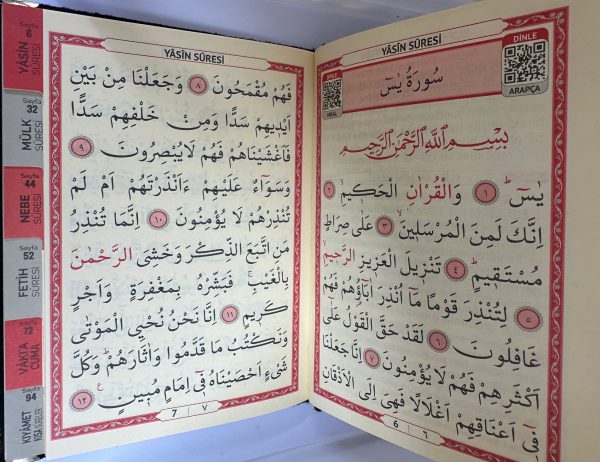 YÂSÎN SÛRESİ
DİNLE
ARAPÇA
DİNLE
MEAL
سُورَةُ يٰسٓ
بِسْمِ اللّٰهِ الرَّحْمٰنِ الرَّحِيمِ
يٰسٓ ﴿١﴾ وَالْقُرْاٰنِ الْحَكِيمِ ﴿٢﴾
اِنَّكَ لَمِنَ الْمُرْسَلِينَ ﴿٣﴾ عَلٰى صِرَاطٍ
مُسْتَقِيمٍ ﴿٤﴾ تَنْزِيلَ الْعَزِيزِ الرَّحِيمِ
﴿٥﴾ لِتُنْذِرَ قَوْمًا مَٓا اُنْذِرَ اٰبَٓاؤُ۬هُمْ فَهُمْ
غَافِلُونَ ﴿٦﴾ لَقَدْ حَقَّ الْقَوْلُ عَلٰٓى
اَكْثَرِهِمْ فَهُمْ لَا يُؤْمِنُونَ ﴿٧﴾ اِنَّا جَعَلْنَا
فِٓي اَعْنَاقِهِمْ اَغْلَالًا فَهِيَ اِلَى الْاَذْقَانِ
6 ٦
YÂSÎN SÛRESİ
فَهُمْ مُقْمَحُونَ ﴿٨﴾ وَجَعَلْنَا مِنْ بَيْنِ
اَيْدِيهِمْ سَدًّا وَمِنْ خَلْفِهِمْ سَدًّا
فَاَغْشَيْنَاهُمْ فَهُمْ لَا يُبْصِرُونَ ﴿٩﴾
وَسَوَٓاءٌ عَلَيْهِمْ ءَاَنْذَرْتَهُمْ اَمْ لَمْ
تُنْذِرْهُمْ لَا يُؤْمِنُونَ ﴿١٠﴾ اِنَّمَا تُنْذِرُ
مَنِ اتَّبَعَ الذِّكْرَ وَخَشِيَ الرَّحْمٰنَ
بِالْغَيْبِۚ فَبَشِّرْهُ بِمَغْفِرَةٍ وَاَجْرٍ
كَرِيمٍ ﴿١١﴾ اِنَّا نَحْنُ نُحْيِي الْمَوْتٰى
وَنَكْتُبُ مَا قَدَّمُوا وَاٰثَارَهُمْۜ وَكُلَّ
شَيْءٍ اَحْصَيْنَاهُ فِٓي اِمَامٍ مُبِينٍ ﴿١٢﴾
7 ٧
Sayfa
6
YÂSÎN
SÛRESİ
Sayfa
32
MÜLK
SÛRESİ
Sayfa
44
NEBE
SÛRESİ
Sayfa
52
FETİH
SÛRESİ
Sayfa
72
VÂKI'A
CUMA
Sayfa
94
KIYÂMET
KISA SÛRELER